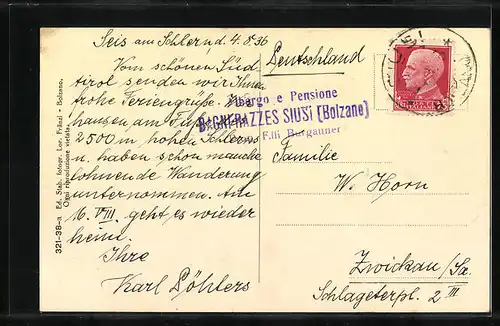 Seis am Schlern d. 4.8.36
Vom schönen Süd
tirol senden wir Ihnen
frohe Feriengrüße. Wir
hausen am Fuße des
2500 m hohen Schlerns
u. haben schon manche
lohnende Wanderung
unternommen. Am
16. VIII. geht es wieder
heim.
Ihre
Karl Döhlers
Deutschland
Albergo e Pensione
BAGNI RAZZES SIUSI (Bolzano)
F.lli Burgauner
Familie
W. Horn
Zwickau /Sa.
Schlageterpl. 2 III
321-38-a Ed. Stab. fotogr. Lor. Fränzl - Bolzano.
Ogni riproduzione vietata.
SIUSI